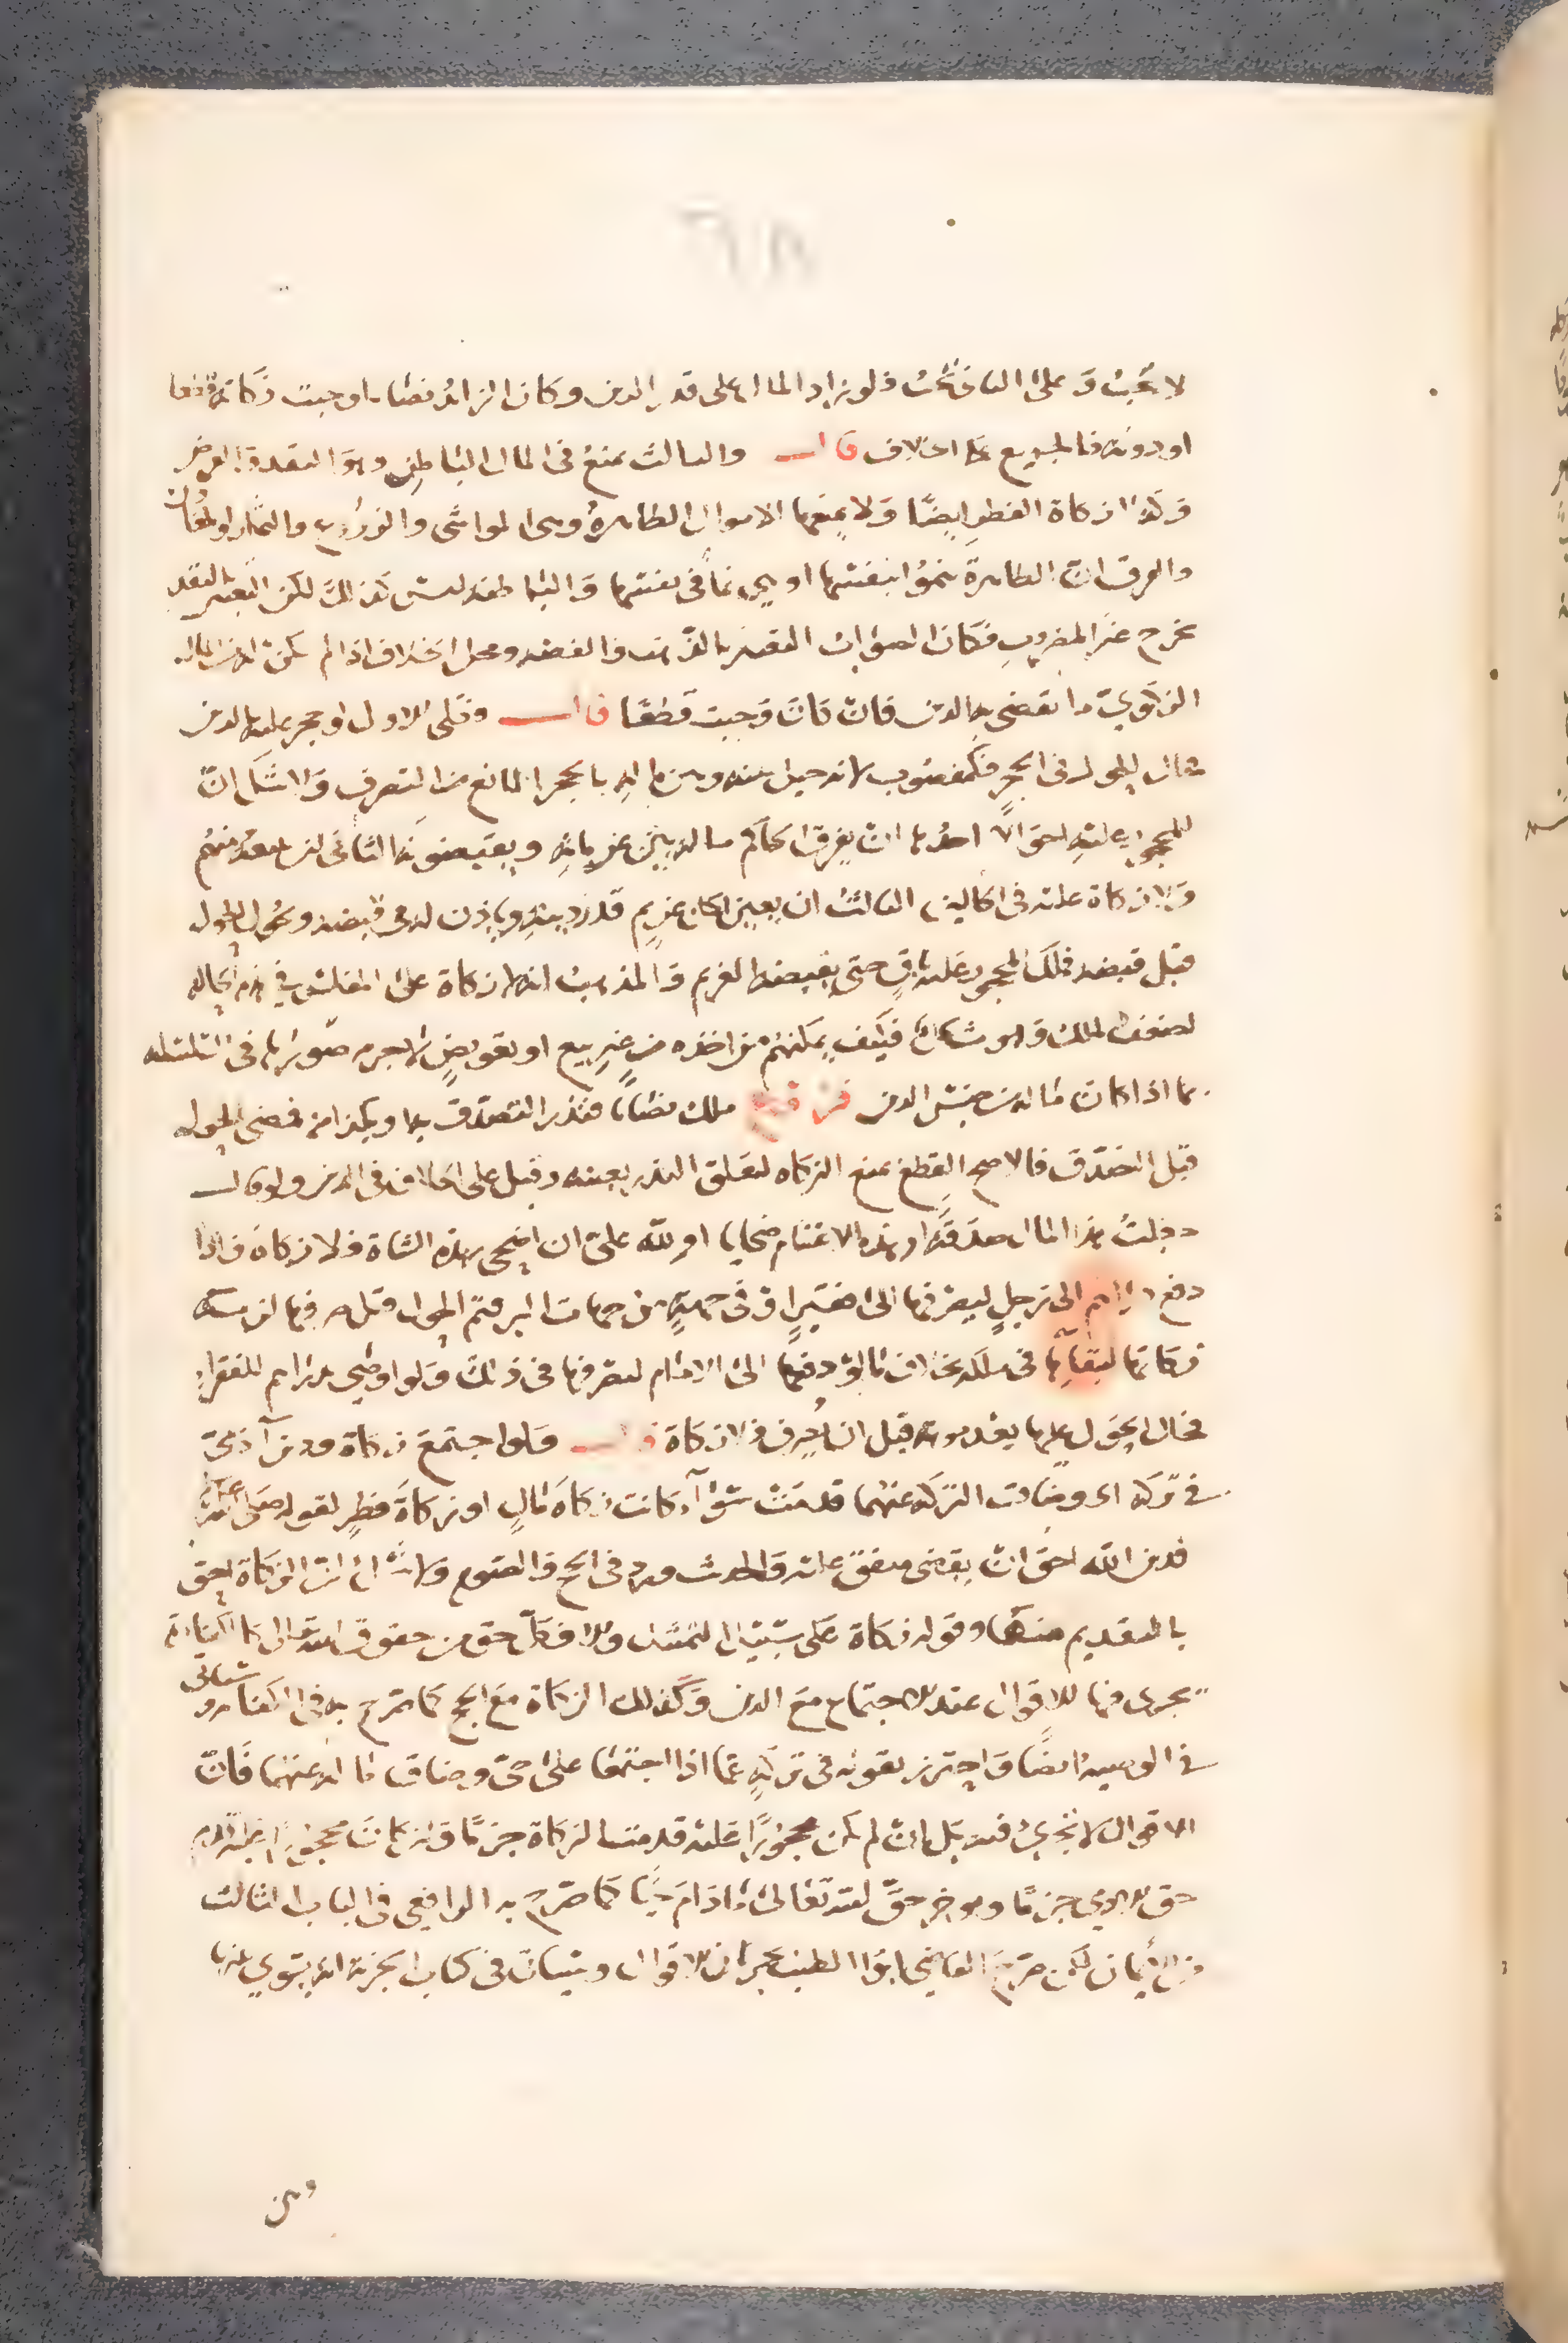 لا تجب وعلى الثاني تجب فلو زاد المال على قدر الدين وكان الزائد نصابا وجبت زكاته قطعا
او دونه فالجميع على الخلاف قال والثالث يمنع في المال الباطن وهو النقد والعرض
وكذا زكاة الفطر ايضا ولا يمنعها الاموال الظاهرة وهي المواشي والزروع والثمار والمعادن
والفرق ان الظاهرة تنموا بنفسها او هي نما في نفسها والباطنة ليس كذلك لكن التعبير بالنقد
يخرج غير المضروب فكان الصواب التعبير بالذهب والفضة ومحل الخلاف اذا لم يكن له من المال
الزكوي ما يقضي به الدين فان كان وجبت قطعا قال وعلى الاول لو حجر عليه لدين
فحال الحول في الحجر فكمغصوب لانه حيل بينه وبين ماله بالحجر المانع من التصرف واشتكل ان
للمحجور عليه احوالا احدها ان يفرق الحاكم ماله بين غرمائه ويقبضونه الثاني لم يقبضه منهم
ولا زكاة عليه في الحالين الثالث ان يعين لكل غريم قدر دينه وياذن له في قبضه ويحول الحول
قبل قبضه فملك المحجور عليه باق حتى يقبضه الغريم والمذهب انه لا زكاة على المفلس في هذه الحالة
لضعف الملك وهو مشكل فكيف يمكنهم من اخذه من غير بيع او تعويض لا جرم صورها في السلسلة
بما اذا كان ماله من جنس الدين فرع ملك نصابا فنذر التصدق به او بكذا منه فمضى الحول
قبل التصدق فالاصح القطع بمنع الزكاه لتعلق النذر بعينه وقيل على الخلاف في الدين ولو قال
جعلت هذا المال صدقة او هذه الاغنام ضحايا او لله علي ان اضحي بهذه الشاة فلا زكاة فاذا
دفع دراهم الى رجل ليصرفها الى فقير او في جهة من جهات البر فتم الحول قبل صرفها لزمته
زكاتها لبقايها في ملكه بخلاف ما لو دفعها الى الامام ليصرفها في ذلك ولو اوصى بدراهم للفقراء
فحال الحول عليها بعد موته قبل ان تصرف فلا زكاة قال ولو اجتمع زكاة ودين آدمي
في تركه اي وضاقت التركه عنهما قدمت سواء كانت زكاة مال او زكاة فطر لقوله صلى الله عليه
فدين الله احق ان يقضى متفق عليه والحديث ورد في الحج والصوم ولا شك ان الزكاة احق
بالتقديم منهما وقوله زكاة على سبيل التمثيل والا فكل حق من حقوق الله تعالى كالكفارة
يجري فيها الاقوال عند الاجتماع مع الدين وكذلك الزكاة مع الحج كما صرح به في الكفاره وسياتي
في الوصيه ايضا واحترز بقوله في تركه عما اذا اجتمعا على حي وضاق ماله عنهما فان
الاقوال لا تجري فيه بل ان لم يكن محجورا عليه قدمت الزكاة جزما وان كان محجورا عليه قدم
حق الآدمي جزما ويوخر حق الله تعالى ما دام حيا كما صرح به الرافعي في الباب الثالث
من الايمان لكن صرح القاضي ابو الطيب بجريان الاقوال وسياتي في كتاب الجزية انه يسوي بينها
ومن